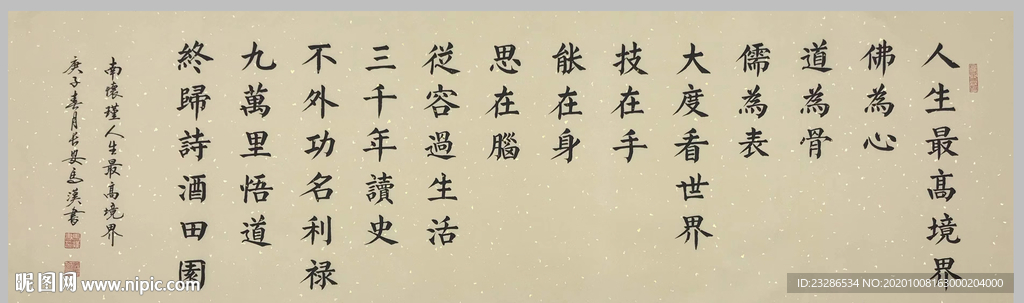 人生最高境界
佛為心
道為骨
儒為表
大度看世界
技在手
能在身
思在腦
從容過生活
三千年讀史
不外功名利祿
九萬里悟道
終歸詩酒田園
南懷瑾人生最高境界
庚子春月長安馬漢書
昵图网 www.nipic.com
ID:23286534 NO:20201008163000204000